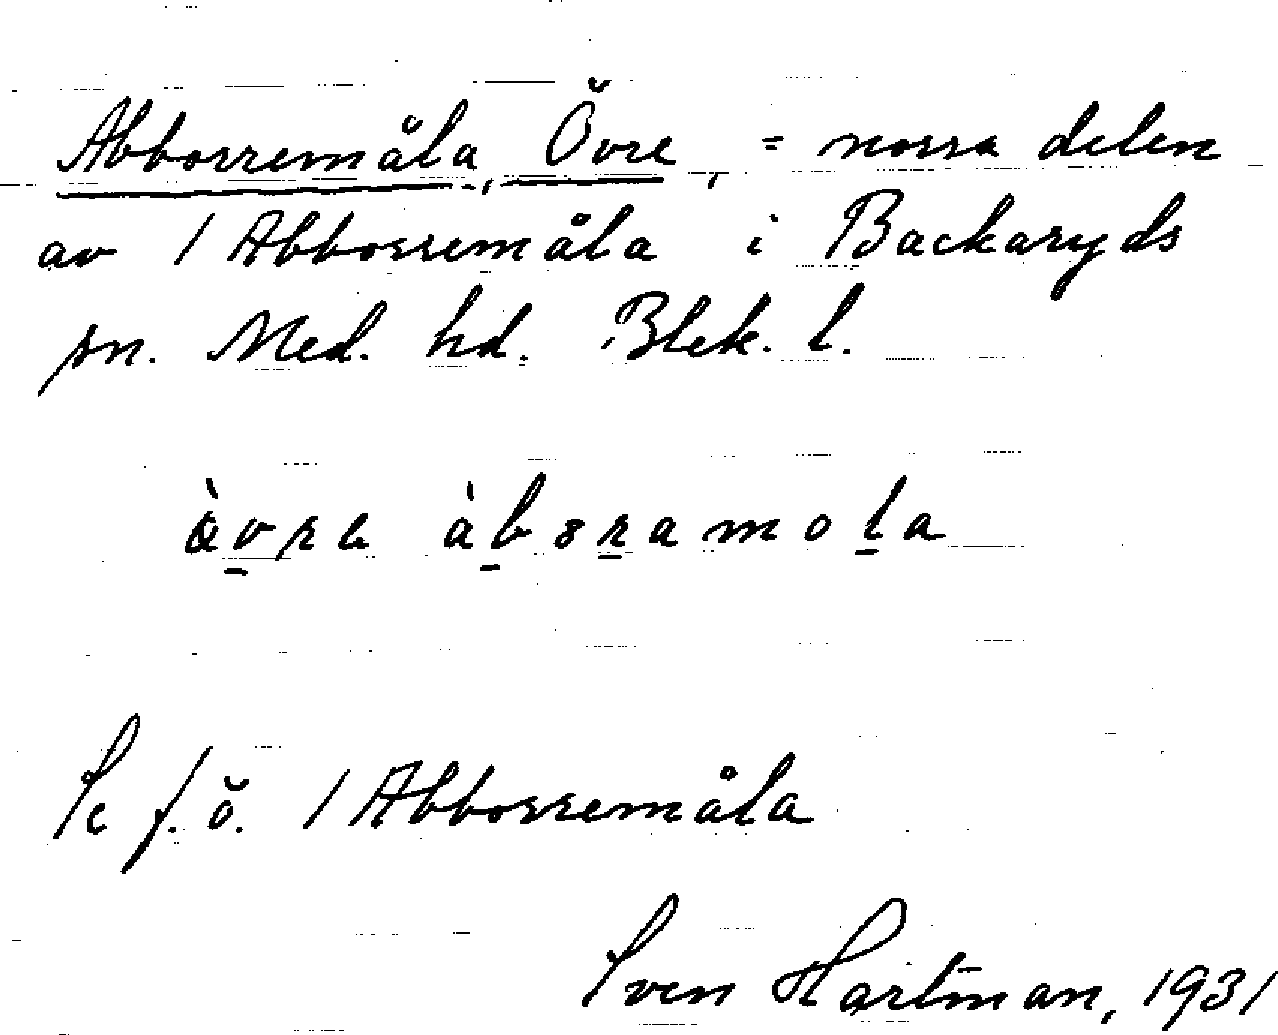 Abborremåla, Övre, = norra delen
av 1 Abborremåla i Backaryds
sn. Med. hd. Blek. l.
àbsramola
Se f. ö. 1 Abborremåla
Sven Hartman, 1931